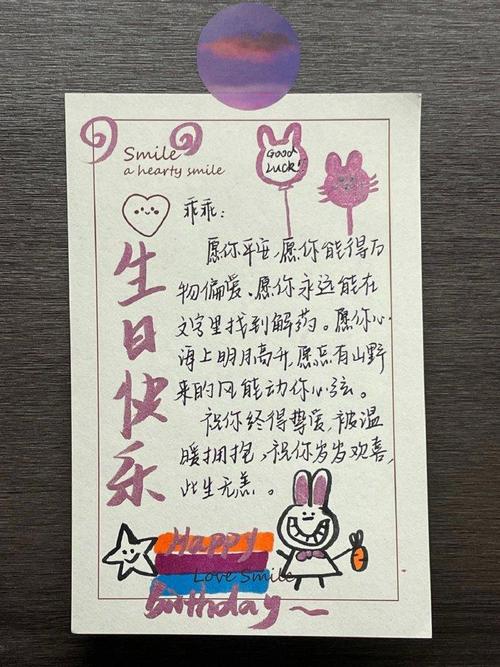 Smile
a hearty smile
Good
Luck!!
生日快乐
乖乖：
愿你平安,愿你能得万
物偏爱、愿你永远能在
文字里找到解药。愿你心
海上明月高升,愿总有山野
来的风能动你心弦。
祝你终得挚爱,被温
暖拥抱,祝你岁岁欢喜,
此生无恙。
Happy
Love Smile
Birthday~